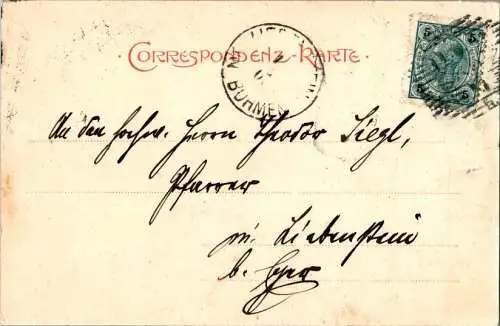 CORRESPONDENZ-KARTE
BÖHMEN
5 5
An den hochw. Herrn Theodor Siegl,
Pfarrer
in Liebenstein
b. Eger